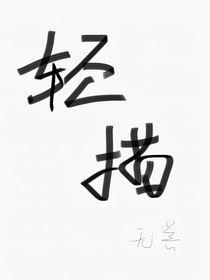 轻
描
无善